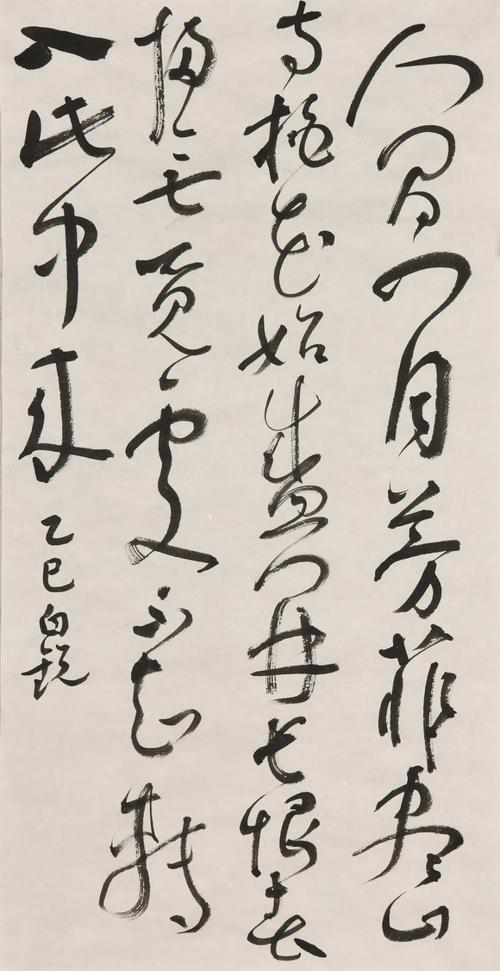 人間四月芳菲尽山
寺桃花始盛開長恨春
歸無覓處不知轉
入此中来
乙巳白銳